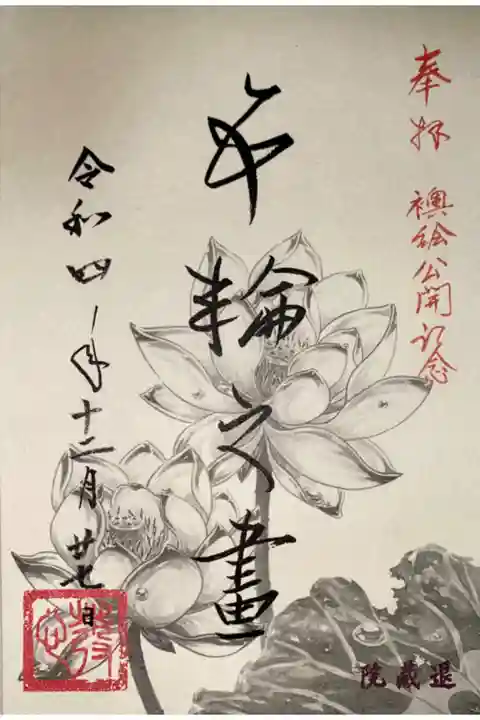 奉拝 襖絵公開記念
輪之畫
令和四年十二月廿七日
退蔵院